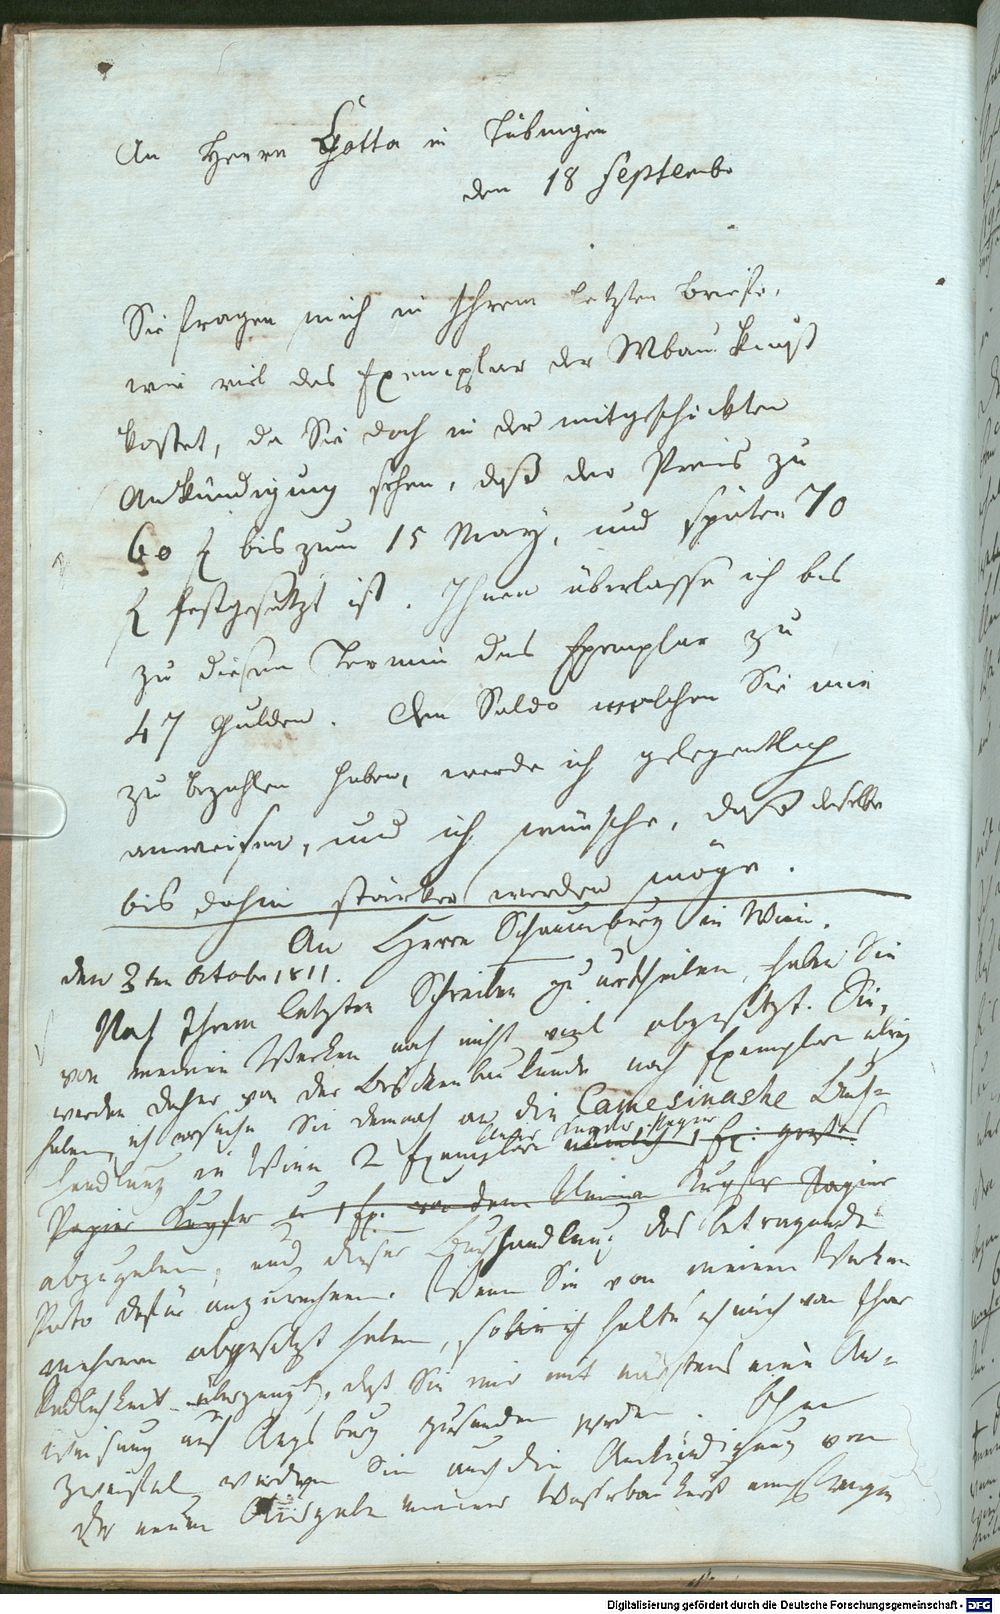 An Herrn Cotta in Tübingen
den 18 Septembr
Sie fragen mich in Ihrem letzten Briefe,
wie viel das Exemplar der Wbau Kunst
kostet, da Sie doch in der mitgeschickten
Ankündigung sehen, daß der Preis zu
60 f bis zum 15 May, und später 70
f festgesetzt ist. Ihnen überlasse ich bis
zu diesem Termin das Exemplar zu
47 Gulden. Den Saldo welchen Sie mir
zu bezahlen haben, werde ich gelegentlich
anweisen, und ich wünsche, daß derselbe
bis dahin stärker werden möge.
An Herrn Schaumburg in Wien.
den 3ten Octobr 1811.
Nach Ihrem letzten Schreiben zu urtheilen, haben Sie
von meinen Werken noch nicht viel abgesetzt. Sie
werden daher von der Brückenbaukunde noch Exemplare übrig
haben, ich ersuche Sie demnach an die Camesinasche Buch=
handlung in Wien 2 Exemplare nämlich 1 Ex: großes
Papier Kupfer u 1 Ex. von dem kleinen Kupfer Papier
abzugeben, und dieser Buchhandlung das betragende
Porto dafür anzurechnen. Wenn Sie von meinen Werken
mehrere abgesetzt haben, so bin ich halte ich mich von Ihrer
Redlichkeit überzeugt, daß Sie mir mit nächstens eine An=
weisung auf Augsburg zusenden werden. Ohne
Zweifel werden Sie auch die Ankündigung von
der neuen Ausgabe meiner Wasserbaukunst empfangen